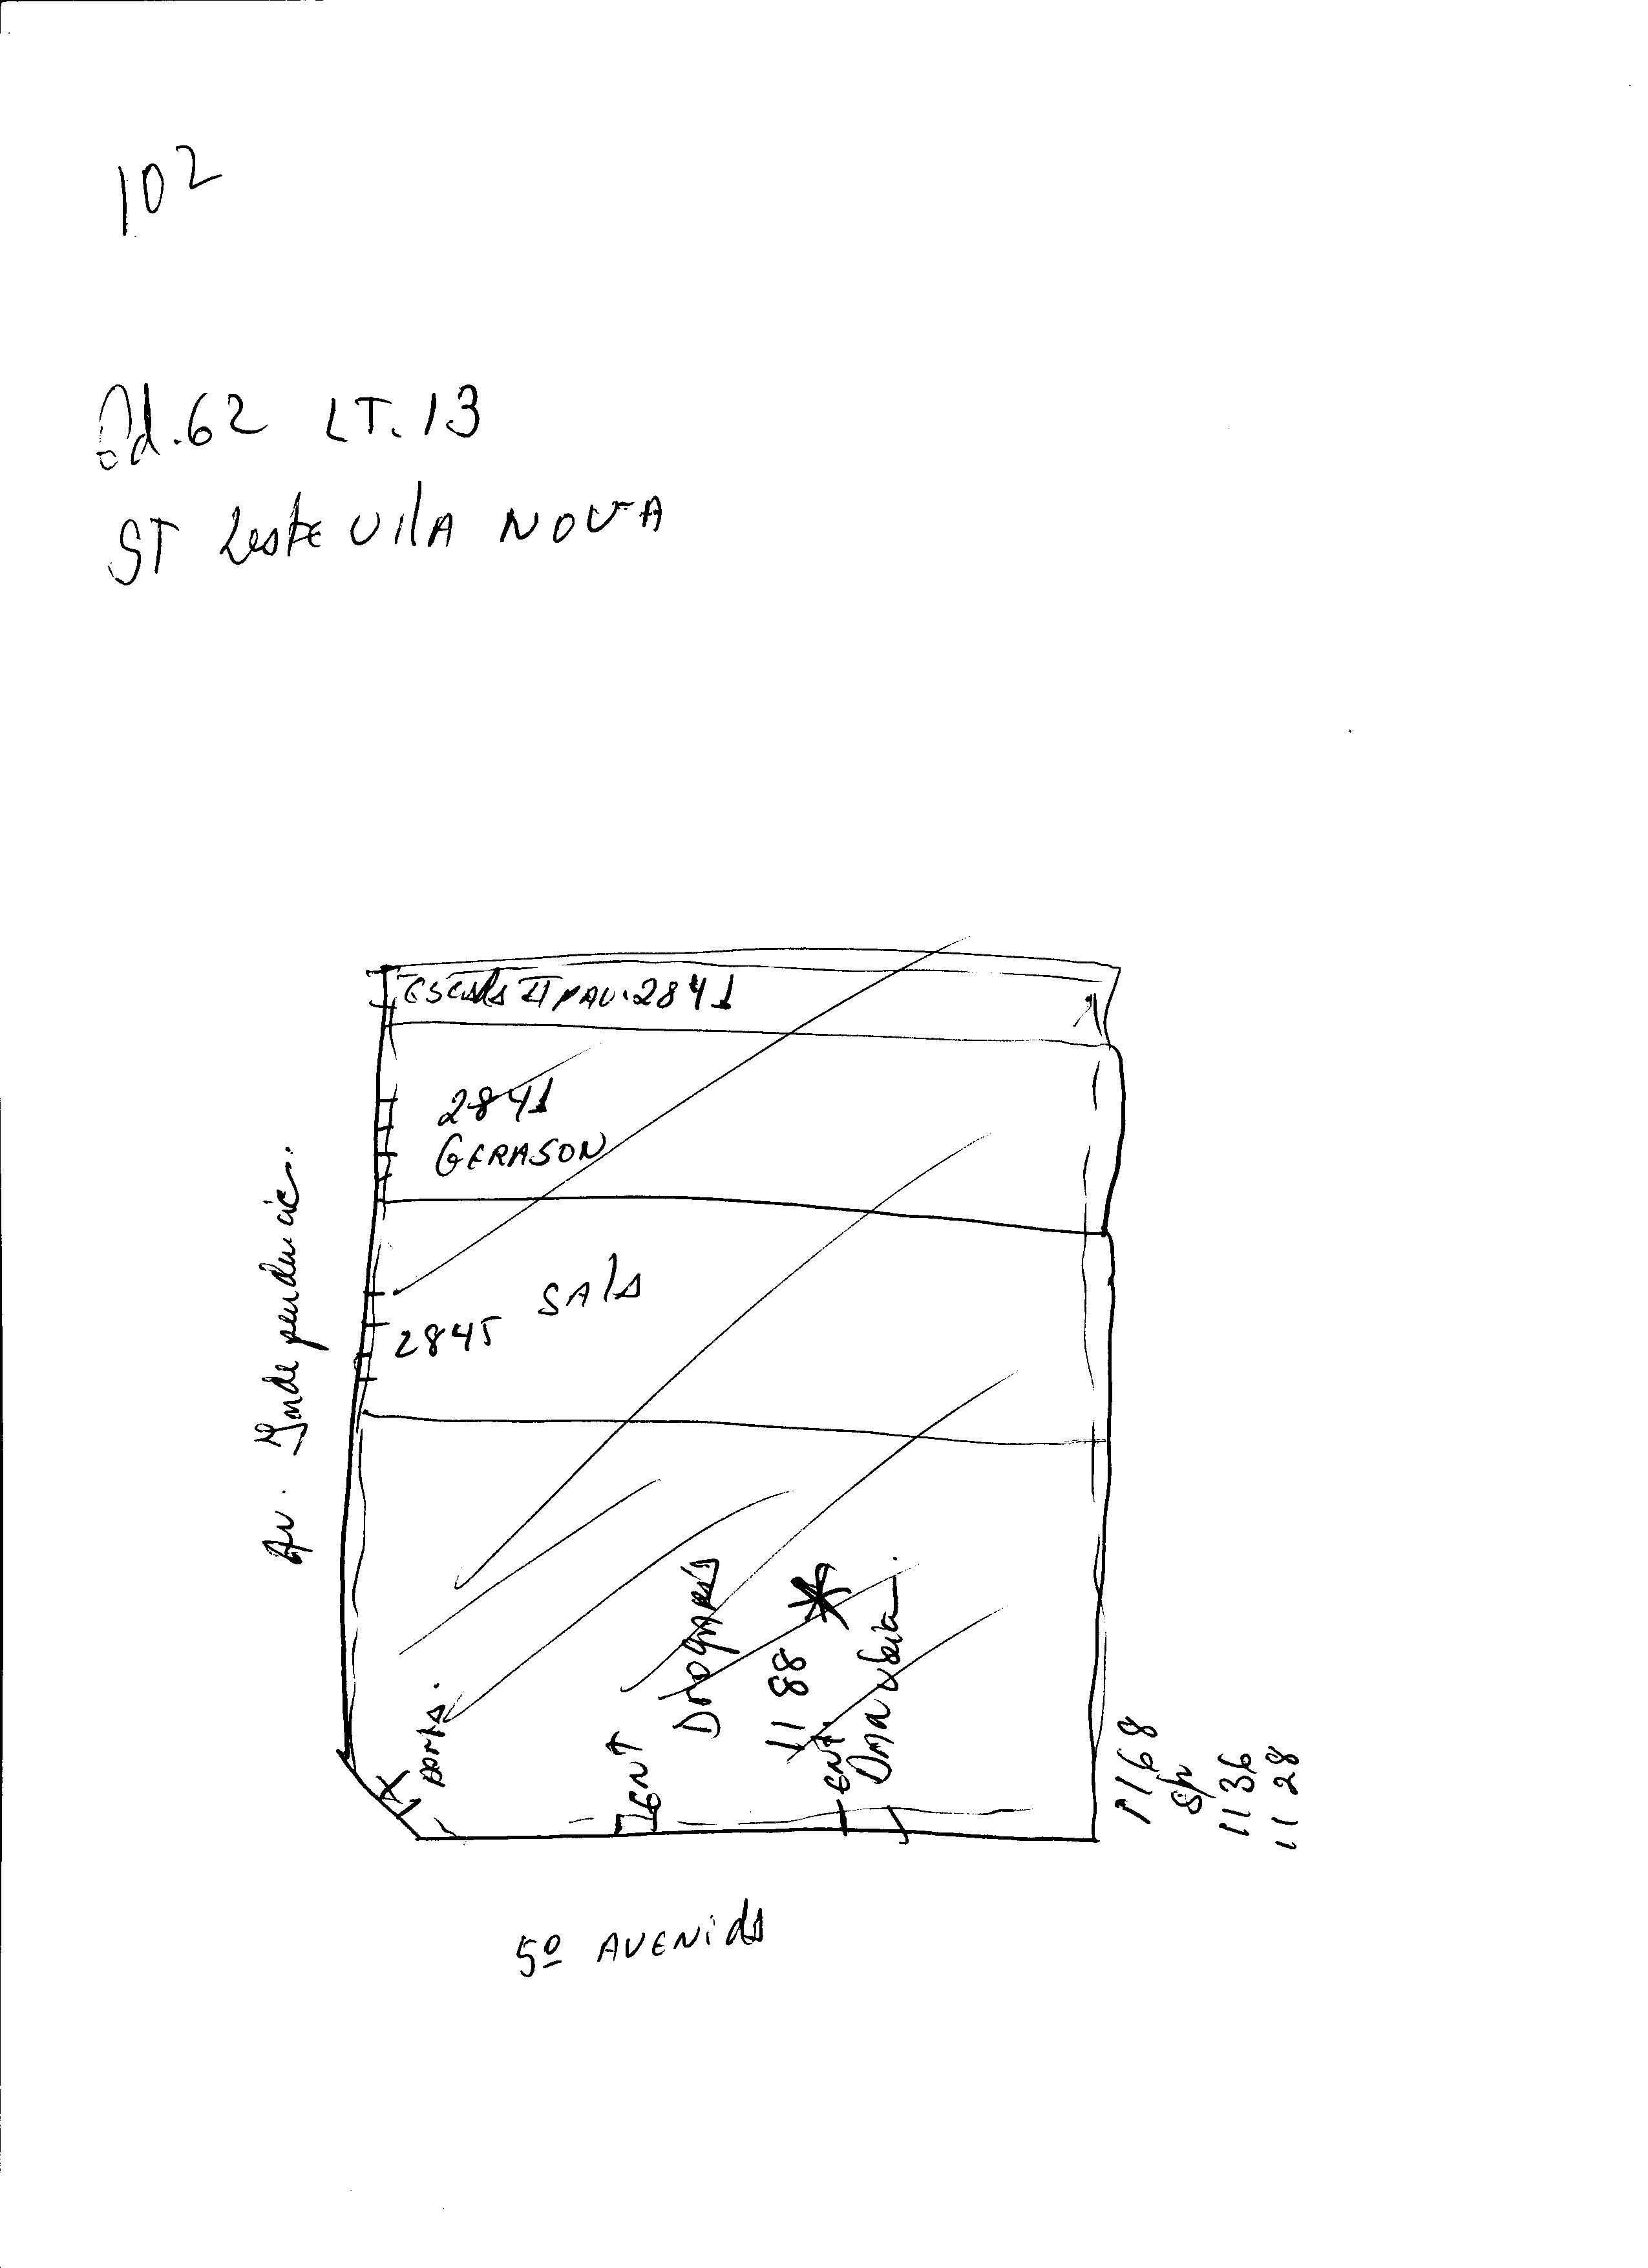 102
Qd. 62 LT. 13
ST Leste VilA NOVA
ESCAdA II PAV. 2841
2841
GERASON
SAlA
2845
Av. Independencia.
porta.
ENT
DrogAriA
1188
ENT.
1168
1136
1128
5º AVENidA